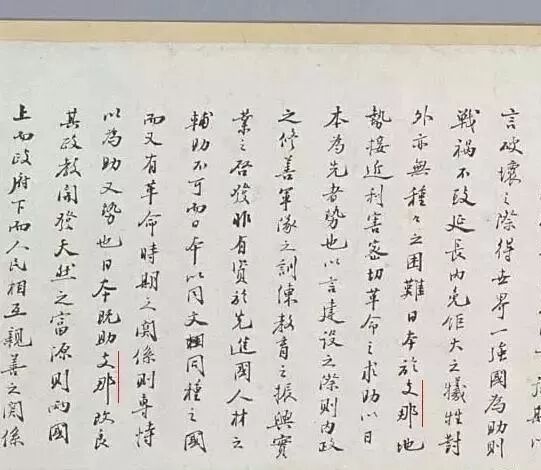 言破壞之際得世界一強國為助則
戰禍不致延長內免鉅大之犧牲對
外亦無種々之困難日本於支那地
勢接近利害密切革命之求助以日
本為先者勢也以言建設之際則內政
之修善軍隊之訓練教育之振興實
業之啓發非有資於先進國人材之
輔助不可而日本以同文同種之國
而又有革命時期之関係則專恃
以為助又勢也日本既助支那改良
其政教開發天然之富源則兩國
上而政府下而人民相互親善之関係